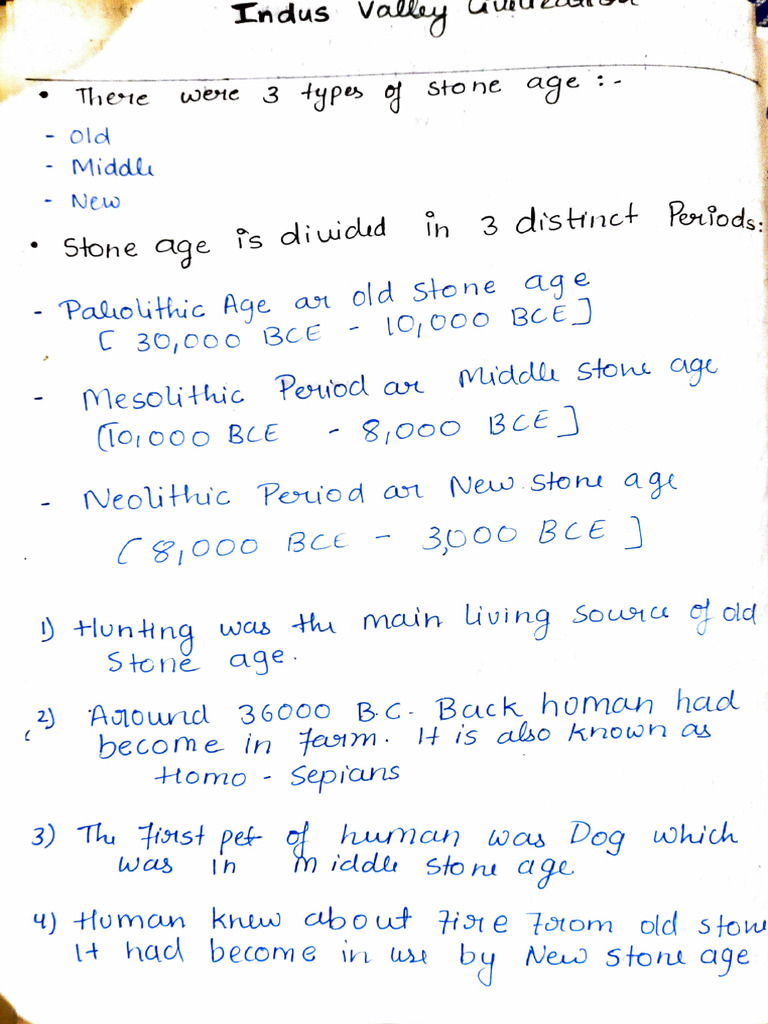 Indus Valley Civilization
• There were 3 types of stone age :-
- Old
- Middle
- New
• Stone age is divided in 3 distinct Periods:
- Paliolithic Age or old stone age
[ 30,000 BCE - 10,000 BCE ]
- Mesolithic Period or Middle stone age
[10,000 BCE - 8,000 BCE ]
- Neolithic Period or New stone age
[ 8,000 BCE - 3,000 BCE ]
1) Hunting was the main living source of old
Stone age.
2) Around 36000 B.C. Back homan had
become in farm. It is also known as
Homo - Sepians
3) The first pet of human was Dog which
was in middle stone age
4) Human knew about fire from old stone
It had become in use by New stone age